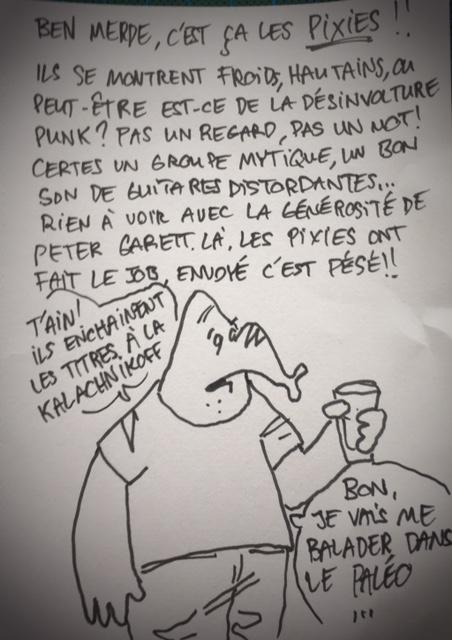 BEN MERDE, C'EST ÇA LES PIXIES !!
ILS SE MONTRENT FROIDS, HAUTAINS, OU
PEUT-ÊTRE EST-CE DE LA DÉSINVOLTURE
PUNK? PAS UN REGARD, PAS UN MOT!
CERTES UN GROUPE MYTIQUE, UN BON
SON DE GUITARES DISTORDANTES...
RIEN À VOIR AVEC LA GÉNÉROSITÉ DE
PETER GARETT. LÀ, LES PIXIES ONT
FAIT LE JOB, ENVOYÉ C'EST PÉSÉ!!
T'AIN!
ILS ENCHAINENT
LES TITRES, À LA
KALACHNIKOFF
BON,
JE VAIS ME
BALADER DANS
LE PALÉO
...